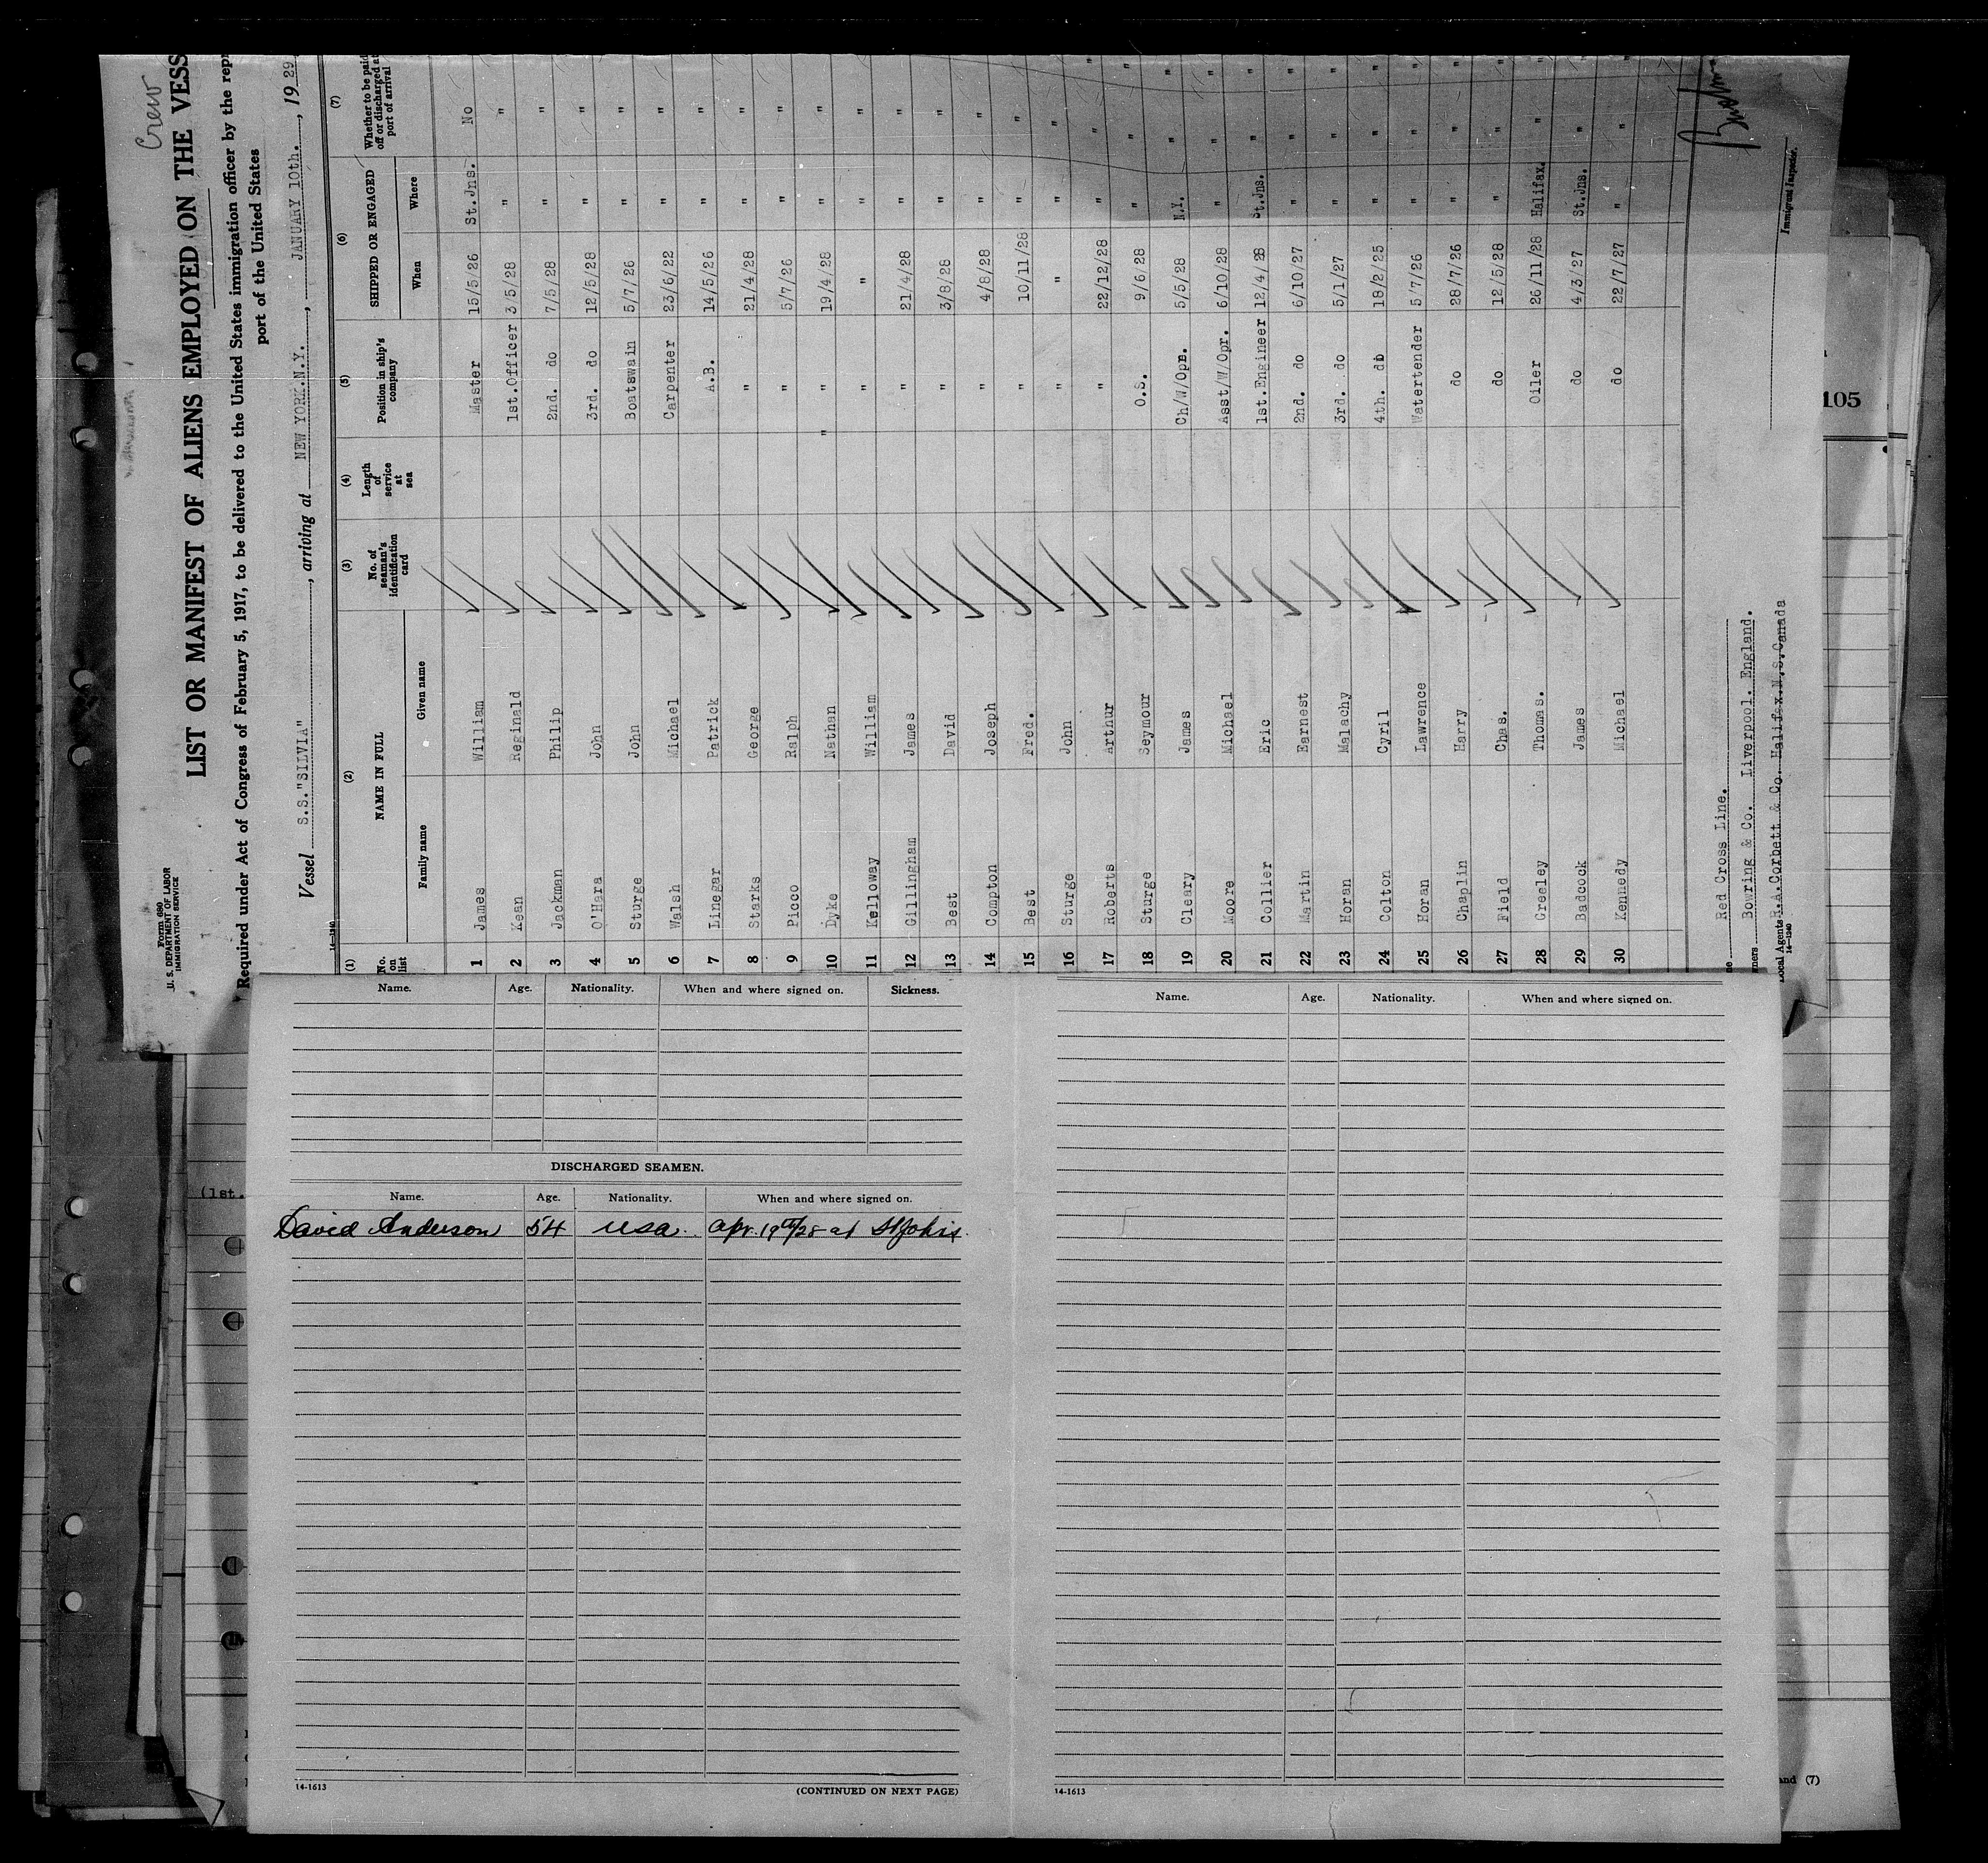 Crew
Form 680
U. S. DEPARTMENT OF LABOR
IMMIGRATION SERVICE
LIST OR MANIFEST OF ALIENS EMPLOYED ON THE VESS
Required under Act of Congress of February 5, 1917, to be delivered to the United States immigration officer by the repr
port of the United States
Vessel S.S."SILVIA", arriving at NEW YORK.N.Y., JANUARY 10th., 1929
14—1240
(1) (2) (3) (4) (5) (6) (7)
No. on list NAME IN FULL No. of seaman's identification card Length of service at sea Position in ship's company SHIPPED OR ENGAGED Whether to be paid off or discharged at port of arrival
Family name Given name When Where
1 James William Master 15/5/26 St.Jns. No
2 Kean Reginald 1st.Officer 3/5/28 " "
3 Jackman Philip 2nd. do 7/5/28 " "
4 O'Hara John 3rd. do 12/5/28 " "
5 Sturge John Boatswain 5/7/26 " "
6 Walsh Michael Carpenter 23/6/22 " "
7 Linegar Patrick A.B. 14/5/26 " "
8 Starks George " 21/4/28 " "
9 Picco Ralph " 5/7/26 " "
10 Dyke Nathan " " 19/4/28 " "
11 Kelloway William " " " "
12 Gillingham James " 21/4/28 " "
13 Best David " 3/8/28 " "
14 Compton Joseph " 4/8/28 " "
15 Best Fred. " 10/11/28 " "
16 Sturge John " " " "
17 Roberts Arthur " 22/12/28 " "
18 Sturge Seymour O.S. 9/6/28 " "
19 Cleary James Ch/W/Opr. 5/5/28 N.Y. "
20 Moore Michael Asst/W/Opr. 6/10/28 " "
21 Collier Eric 1st.Engineer 12/4/28 St.Jns. "
22 Martin Earnest 2nd. do 6/10/27 " "
23 Horan Malachy 3rd. do 5/1/27 " "
24 Colton Cyril 4th. do 18/2/25 " "
25 Horan Lawrence Watertender 5/7/26 " "
26 Chaplin Harry do 28/7/26 " "
27 Field Chas. do 12/5/28 " "
28 Greeley Thomas. Oiler 26/11/28 Halifax. "
29 Badcock James do 4/3/27 St.Jns. "
30 Kennedy Michael do 22/7/27 " "
ne Red Cross Line.
ners Bowring & Co. Liverpool. England.
Local Agents F.A.Corbett & Co. Halifax.N.S.Canada
14—1240
Immigrant Inspector.
105
(1st.
Name. Age. Nationality. When and where signed on. Sickness.
DISCHARGED SEAMEN.
Name. Age. Nationality. When and where signed on.
David Anderson 54 usa. Apr. 19th/28 at St Johns.
14-1613
(CONTINUED ON NEXT PAGE)
Name. Age. Nationality. When and where signed on.
14-1613
and (7)